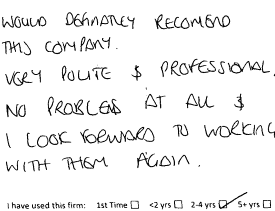 WOULD DEFINATLEY RECOMEND
THIS COMPANY.
VERY POLITE $ PROFESSIONAL,
NO PROBLEMS AT ALL $
I LOOK FORWARD TO WORKING
WITH THEM AGAIN.
I have used this firm: 1st Time ☐ <2 yrs ☐ 2-4 yrs ☑ 5+ yrs ☐